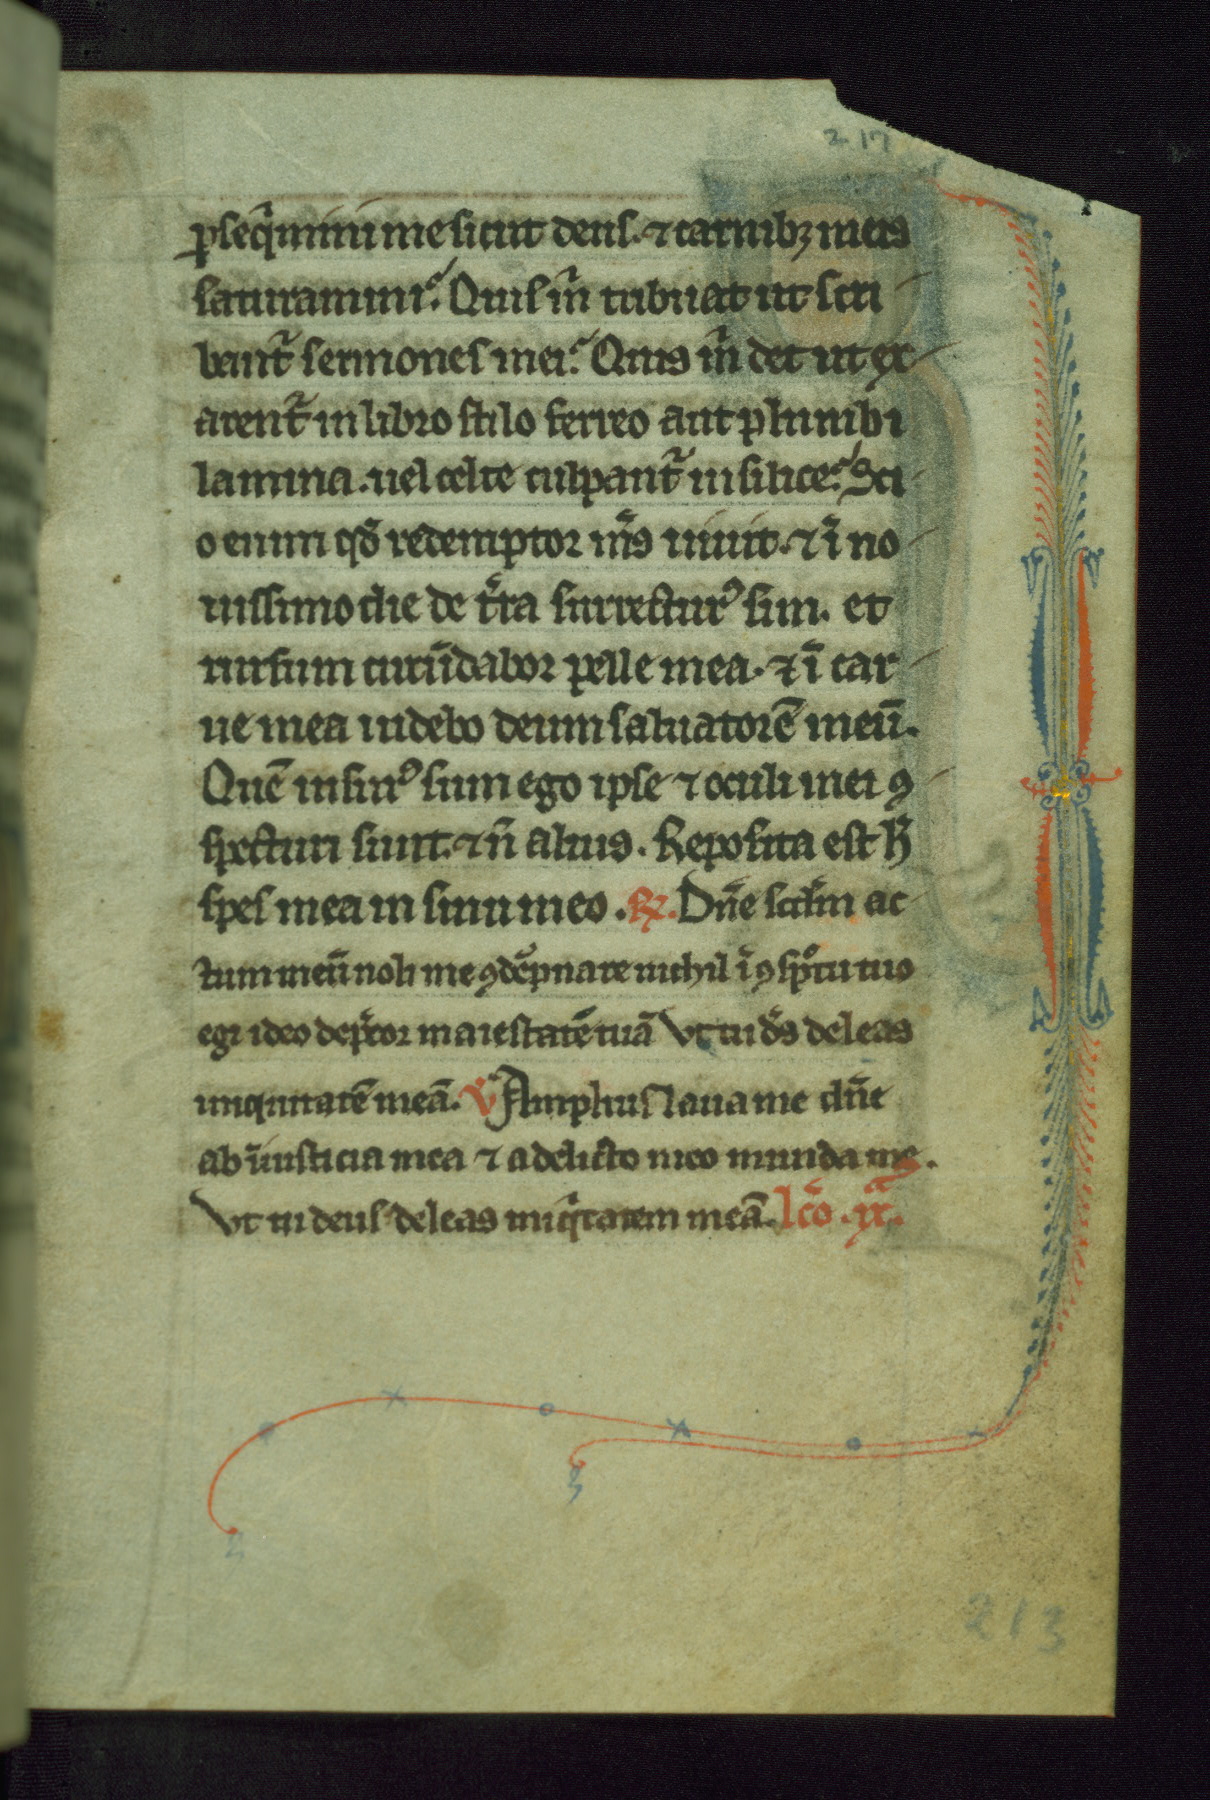 217
ꝑseq̃mini me sicut deus. ⁊ carnibꝫ meis
saturamini? Quis m̃ tribuat ut scri
bant᷑ sermones mei? Quis m̃ det ut ex
arent᷑ in libro stilo ferreo aut plumbi
lamina. uel celte culpant᷑ in silice? Sci
o enim qd̃ redemptor mẽs uiuit. ⁊ ĩ no
uissimo die de t̃ra surrecturꝰ sum. et
rursum circũdabor pelle mea. ⁊ ĩ car
ne mea uidebo deum saluatorẽ meũ.
Quẽ uisurꝰ sum ego ipse ⁊ oculi mei ꝯ
specturi sunt. ⁊ ñ alius. Reposita est h̃
spes mea in sinu meo. ℟. Dñe scd̃m ac
tum meũ noli me ꝯdẽpnare nichil ĩ ꝯspc̃tu tuo
egi ideo dep̃cor maiestatẽ tuã Vt tu d̃s deleas
iniquitatẽ meã. ℣ Amplius laua me dñe
ab ĩiusticia mea ⁊ a delicto meo munda me.
Vt tu deus deleas iniq̃tatem meã. lc̃o .ix.ᵃ
213